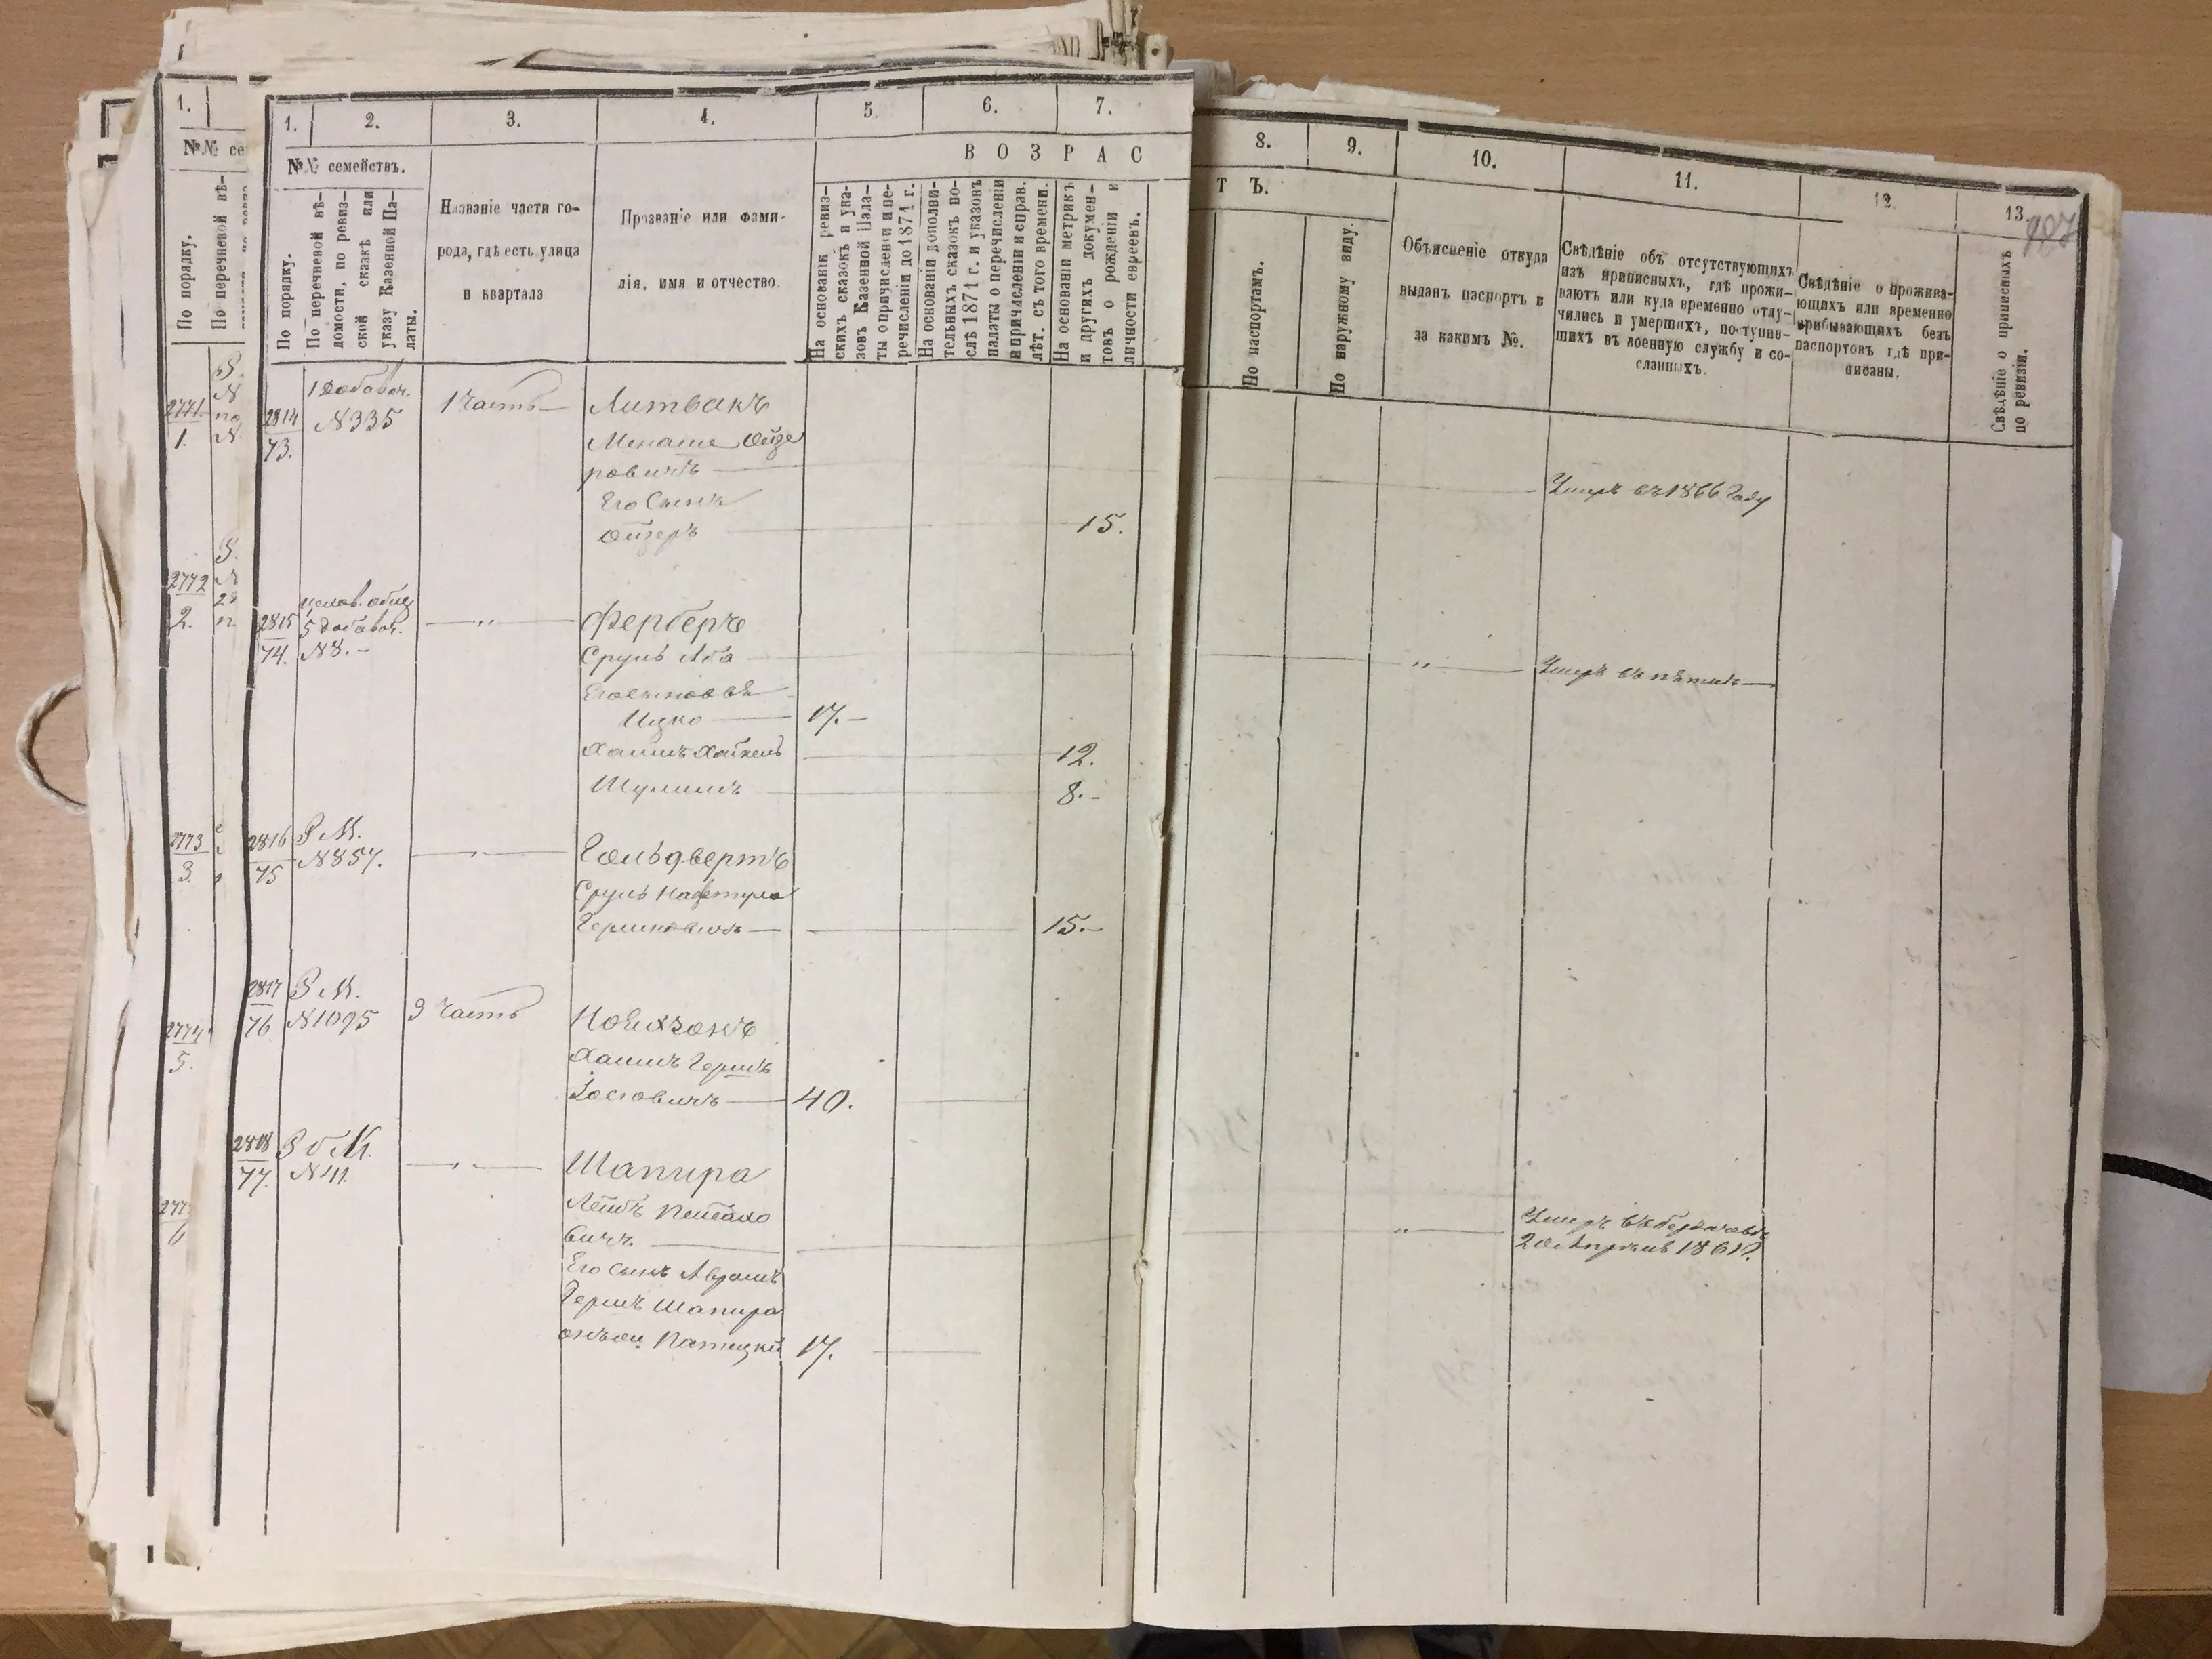 1.
№№ се
По порядку.
По перечневой вѣ-
2771
1.
2772
2.
2773
3.
2774
5.
6
1.
2.
3.
4.
5.
6.
7.
№№ семействъ.
По порядку.
По перечневой вѣ-
домости, по ревиз-
ской сказкѣ или
указу Казенной Па-
латы.
Названіе части го-
рода, гдѣ есть улица
и квартала
Прозваніе или фами-
лія, имя и отчество.
ВОЗРАС
На основаніи ревиз-
скихъ сказокъ и ука-
зовъ Казенной Пала-
ты о причисленіи и пе-
речисленіи до 1871 г.
На основаніи дополни-
тельныхъ сказокъ по-
слѣ 1871 г. и указовъ
палаты о перечисленіи
и причисленіи и справ.
лѣт. съ того времени.
На основаніи метрикъ
и другихъ докумен-
товъ о рожденіи и
личности евреевъ.
8.
9.
10.
11.
12.
13.
ТЪ.
По паспортамъ.
По наружному виду.
Объясненіе откуда
выданъ паспортъ и
за какимъ №.
Свѣдѣніе объ отсутствующихъ
изъ приписныхъ, гдѣ прожи-
ваютъ или куда временно отлу-
чились и умершихъ, поступив-
шихъ въ военную службу и со-
сланныхъ.
Свѣдѣніе о прожива-
ющихъ или временно
прибывающихъ безъ
паспортовъ гдѣ при-
писаны.
Свѣдѣніе о приписныхъ
по ревизіи.
2814
73.
1 Добавоч.
№335
1 Часть
Литвакъ
Менаше Ойзе
ровичъ
Умеръ въ 1866 Году
Его Сынъ
Ойзеръ
15.
2815
74.
5 Добавоч.
№8.-
"
Ферберъ
Сруль Аба
"
Умеръ
Его сыновья
Ицко
17.-
Хаимъ Хайкель
12.
Шулимъ
8.-
2816
75
Р М.
№857.
"
Гольдвертъ
Сруль Нафтула
Гершковичъ
15.-
2817
76
Р М.
№1095
3 Часть
Хаимъ Гершъ
Іосіовичъ
40.
2818
77.
Р б М.
№41.
"
Шапира
Лейбъ Пейсахо
вичъ
"
Умеръ въ Бердичевѣ
20 Апрѣля 1861 г.
Его сынъ Аврамъ
Гершъ Шапира
17.